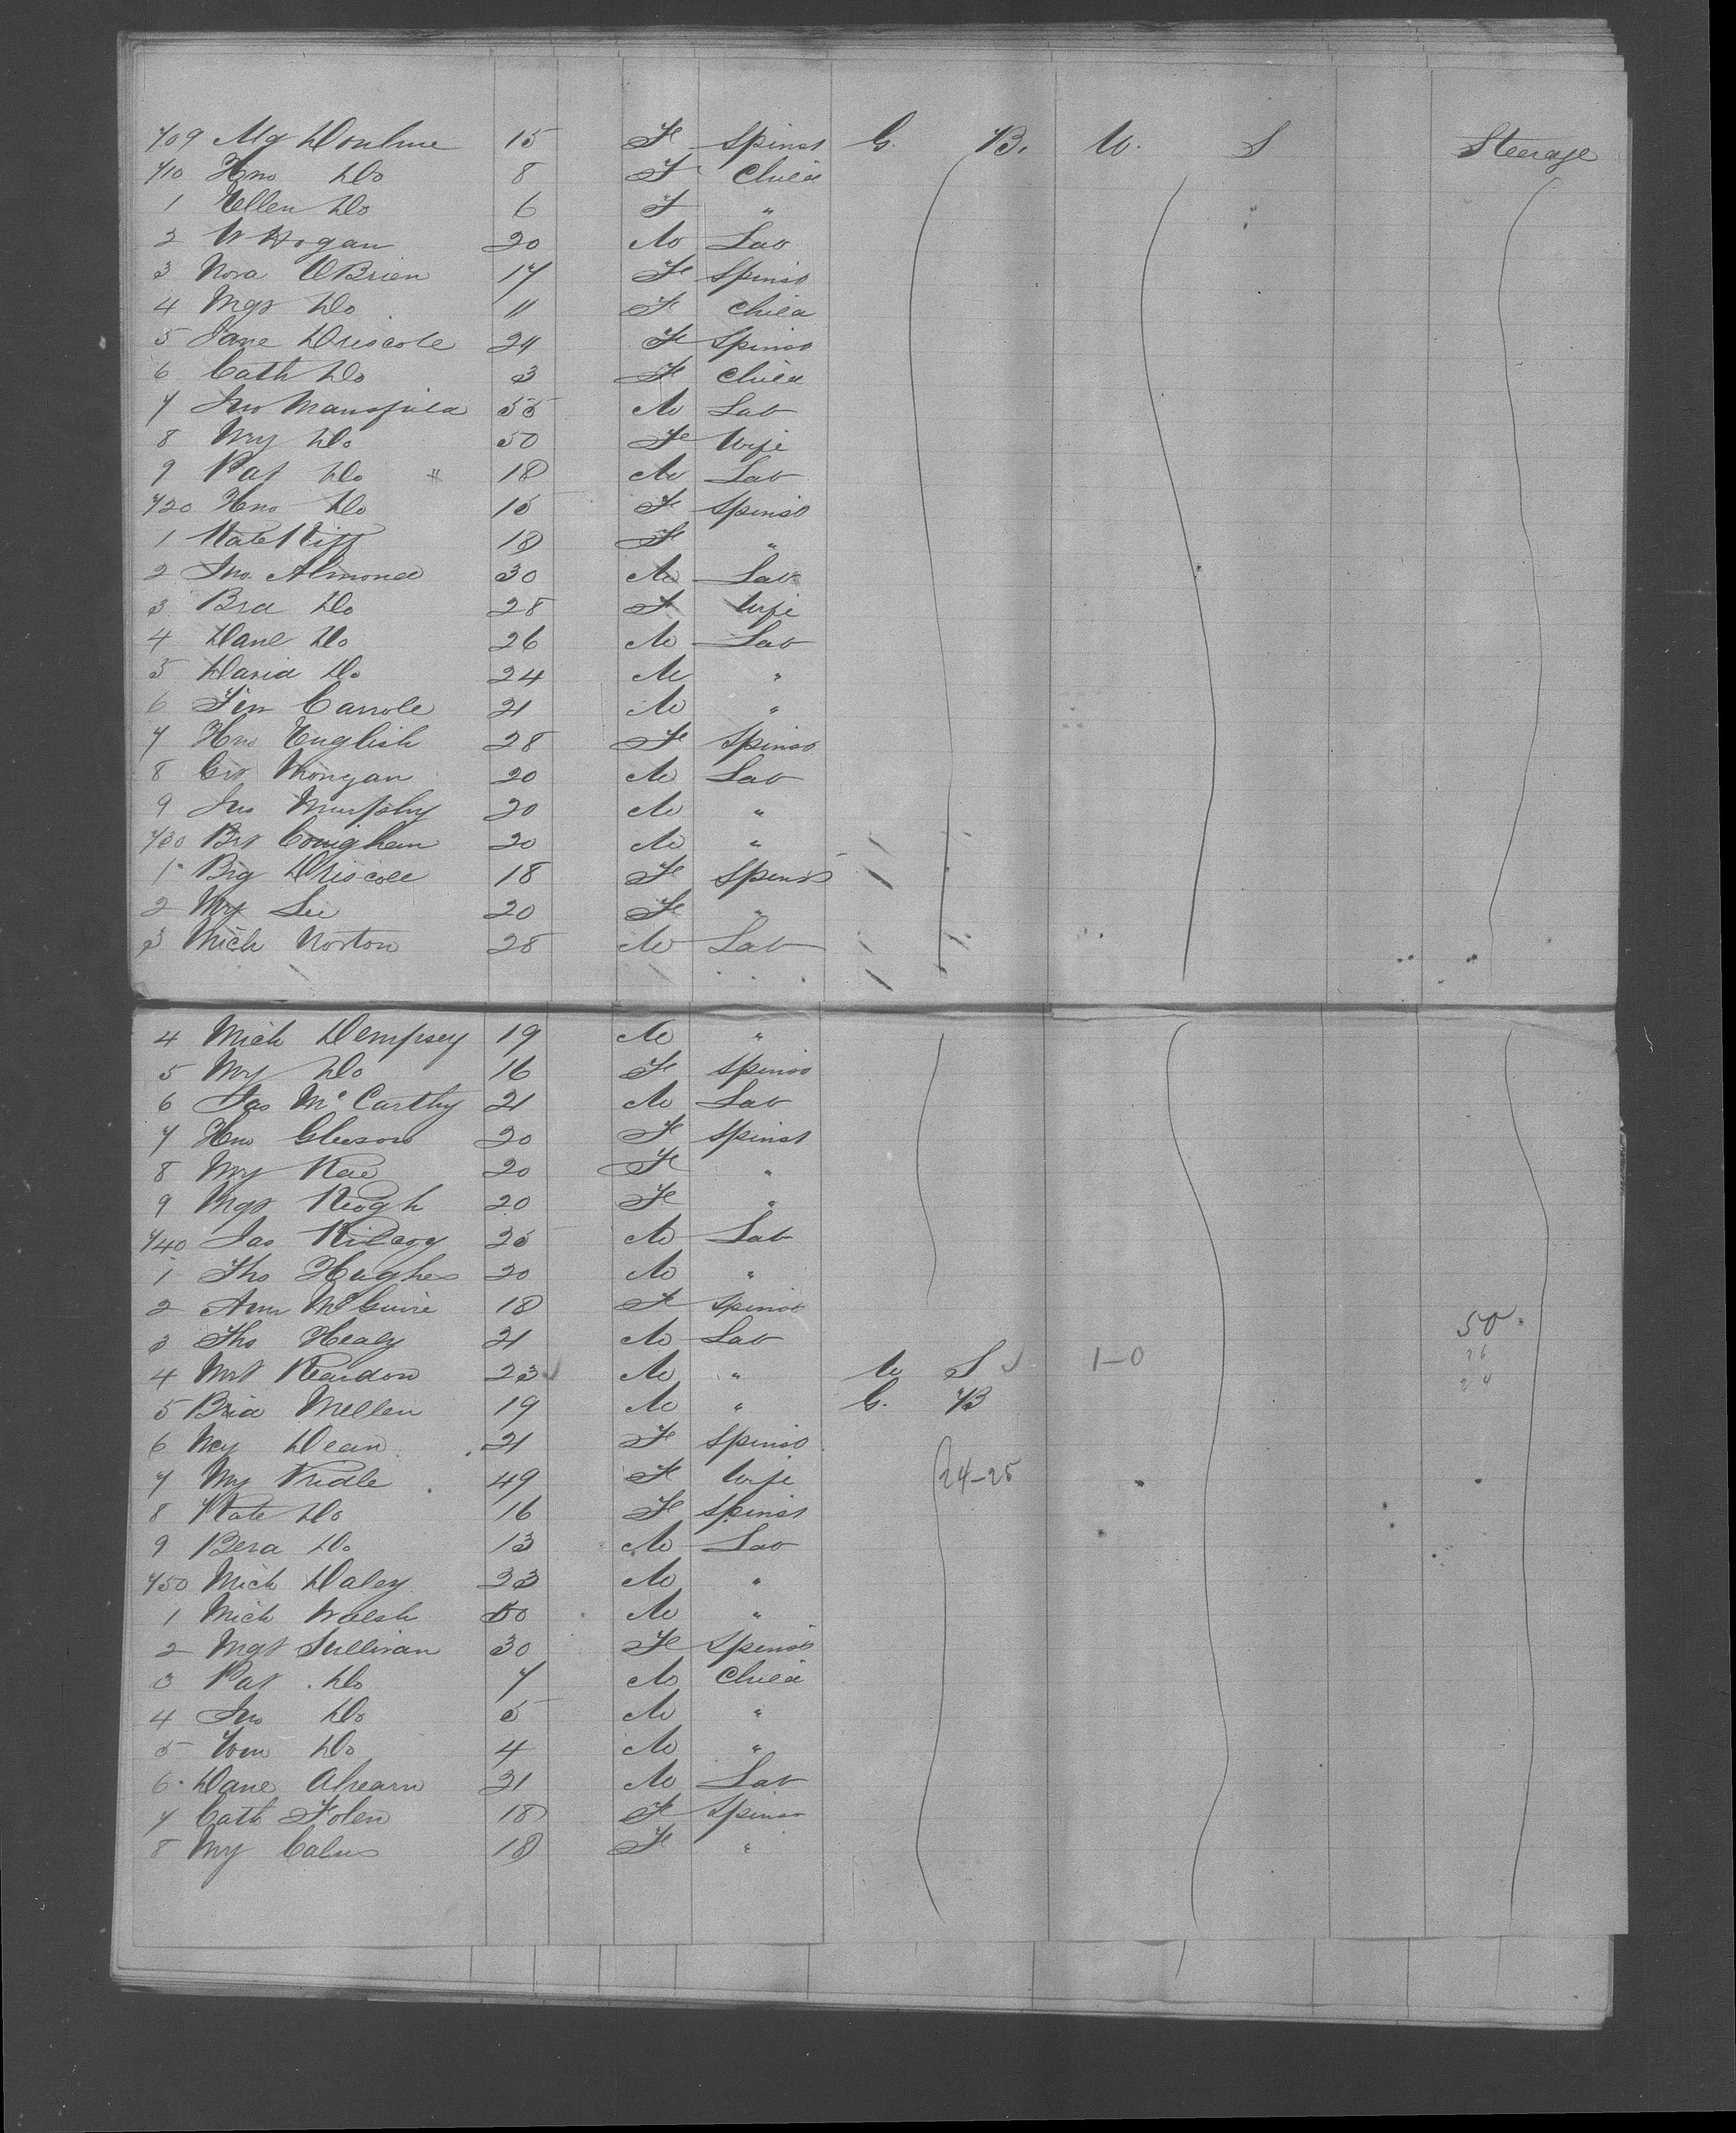 709 15 F Spinst G. B. U. S Steerage
710 Hno Do 8 F Child
1 Ellen Do 6 F "
2 W Hogan 20 M Lab
3 Nora OBrien 17 F Spinst
4 Mgt Do 11 F Child
5 Jane Driscole 24 F Spinst
6 Cath Do 3 F Child
7 Jno Mansfield 55 M Lab
8 My Do 50 F Wife
9 Pat Do 18 M Lab
720 Hno Do 15 F Spinst
1 Kate Kiff 18 F "
2 Jno. Almond 30 M Lab
3 Do 28 F Wife
4 Danl Do 26 M Lab
5 David Do 24 M "
6 Carrole 21 M "
7 Hno English 28 F Spinst
8 20 M Lab
9 Jno Murphy 20 M "
730 Conigham 20 M "
1 Brg Driscoll 18 F Spinst
2 My Lee 20 F "
3 Mich Norton 28 M Lab
4 Mich Dempsey 19 M "
5 My Do 16 F Spinst
6 Jas McCarthy 21 M Lab
7 Hno Gleeson 20 F Spinst
8 My 20 F "
9 Mgt Keogh 20 F "
740 Jas Kilroy 25 M Lab
1 Tho Hughes 20 M "
2 Ann McGuire 18 F Spinst
3 Tho Healy 21 M Lab 50
4 Reardon 23 M " U S 1-0 26
5 Mellen 19 M " G. B 24
6 Dean 21 F Spinst
7 My 49 F Wife 24-25
8 Kate Do 16 F Spinst
9 Do 13 M Lab
750 Mich Daley 23 M "
1 Mich Walsh M "
2 Mgt Sullivan 30 F Spinst
3 Pat Do 7 M Child
4 Jno Do 5 M "
5 Wm Do 4 M "
6 Danl Ahearn 21 M Lab
7 Cath Folen 18 F Spinst
8 My 18 F "